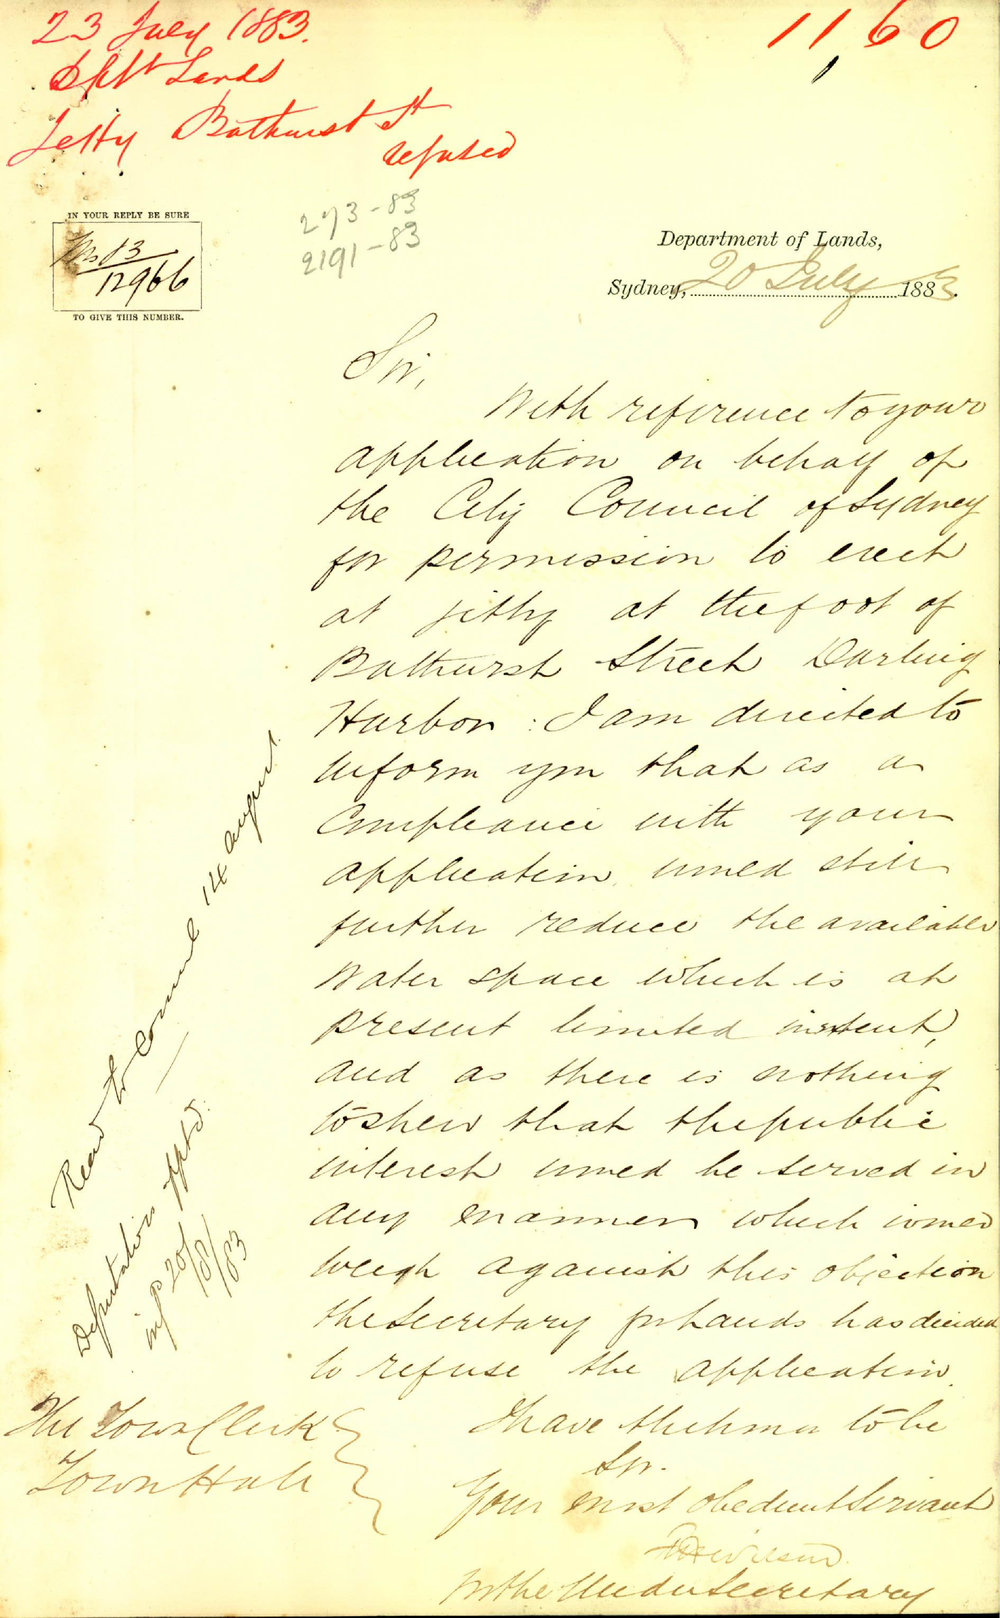 23 July 1883.
1160
Dptt Lands
Jetty Bathurst St
refused
IN YOUR REPLY BE SURE
Ms 83
12966
TO GIVE THIS NUMBER.
273-83
2191-83
Department of Lands,
Sydney, 20 July 1883.
Sir,
With reference to your
application on behalf of
the City Council of Sydney
for permission to erect
at jetty at the foot of
Bathurst Street Darling
Harbor: I am directed to
inform you that as a
compliance with your
application would still
further reduce the available
water space which is at
present limited in extent,
and as there is nothing
to shew that the public
interest would be served in
any manner which would
weigh against this objection
the Secretary for Lands has decided
to refuse the application.
I have the honor to be
Sir.
Your most obedient Servant
Wilson
for the Under Secretary
The Town Clerk
Town Hall
Read to Council 14 August
Deputation apptd.
20/8/83